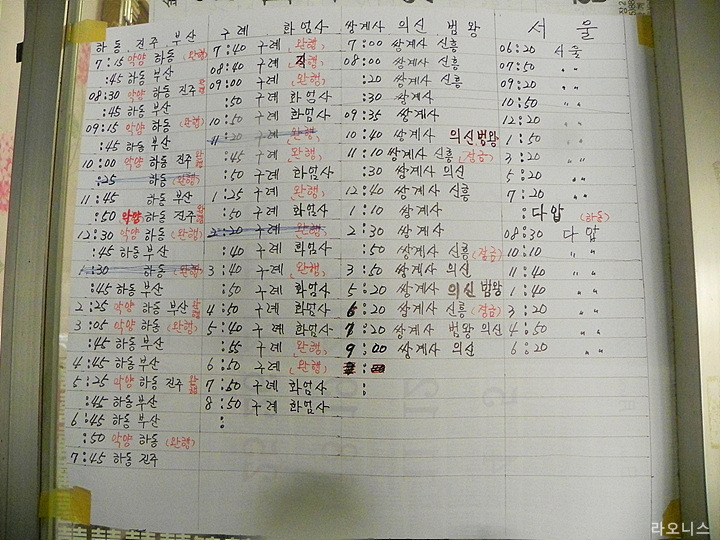 하동. 진주. 부산
7:15 악양 하동 (완행)
:45 하동 부산
08:30 악양 하동 진주 완행
:45 하동 부산
09:15 악양 하동 (완행)
:45 하동 부산
10:00 악양 하동 진주 완행
:25 하동 (완행)
11:45 하동 부산
:50 악양 하동 진주 완행
12:30 악양 하동 (완행)
:45 하동 부산
1:30 하동 (완행)
:45 하동 부산
2:25 악양 하동 부산 완행
3:05 악양 하동 (완행)
:45 하동 부산
4:45 하동 부산
5:25 악양 하동 진주 완행
:45 하동 부산
6:45 하동 부산
:50 악양 하동 (완행)
7:45 하동 진주
구례 화엄사
7:40 구례 (완행)
08:40 구례 행)
09:00 구례 (완행)
:50 구례 화엄사
10:50 구례 화엄사
11:20 구례 (완행)
:45 구례 (완행)
:50 구례 화엄사
1:25 구례 (완행)
:50 구례 화엄사
2:20 구례 (완행)
:40 구례 화엄사
3:40 구례 (완행)
:50 구례 화엄사
4:50 구례 화엄사
5:40 구례 화엄사
:55 구례 (완행)
6:50 구례 (완행)
7:50 구례 화엄사
8:50 구례 화엄사
:
쌍계사 의신 범왕
7:00 쌍계사 신흥
08:00 쌍계사 신흥
:20 쌍계사 신흥
:30 쌍계사
09:35 쌍계사
10:40 쌍계사 의신범왕
11:10 쌍계사 신흥 (잠금)
:30 쌍계사 의신
12:40 쌍계사 신흥
1:10 쌍계사
2:30 쌍계사
:50 쌍계사 신흥 (잠금)
3:50 쌍계사 의신
5:20 쌍계사 의신범왕
6:20 쌍계사 신흥 (잠금)
7:20 쌍계사 범왕 의신
9:00 쌍계사 의신
:
서울
06:20 서울
07:50 〃 〃
09:20 〃 〃
10:50 〃 〃
12:20 〃
1:50 〃
3:20 〃
5:20 〃
7:20 〃
: 다압 (하동)
08:30 다압
10:10 〃
11:40 〃
1:40 〃
3:20 〃
4:50 〃
6:20 〃
라오니스